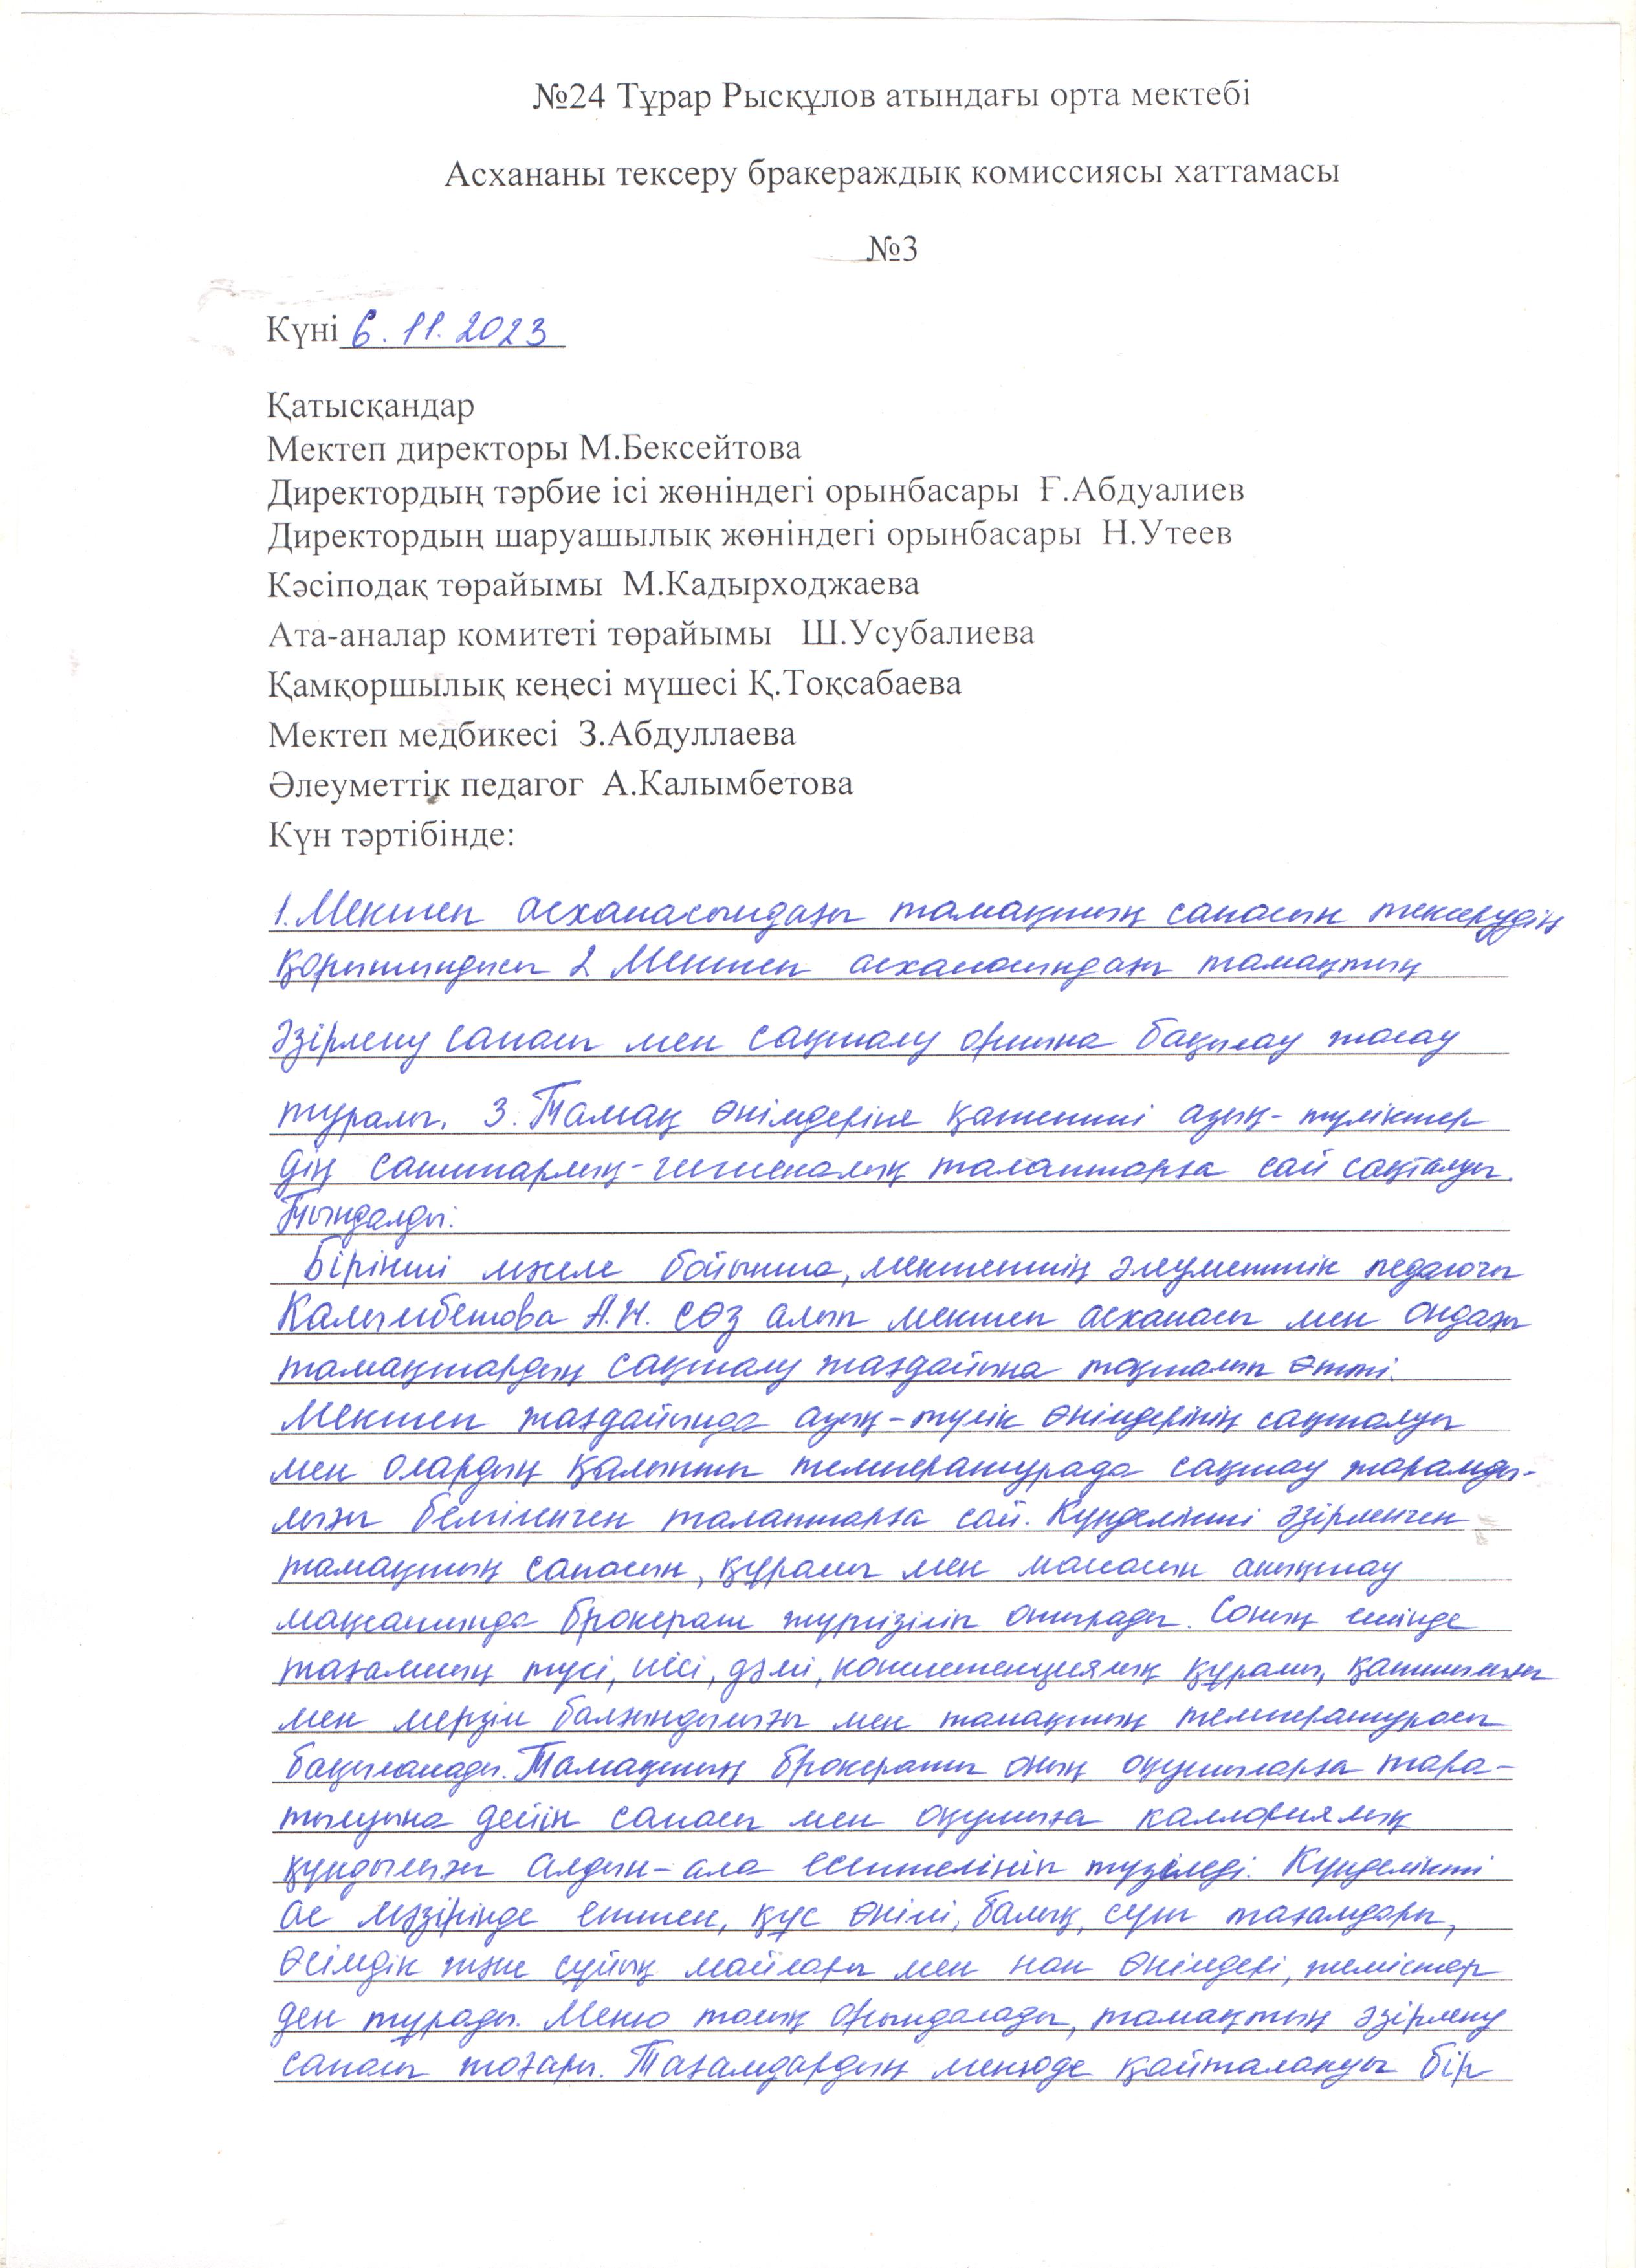 №24 Тұрар Рысқұлов атындағы орта мектебі
Асхананы тексеру бракераждық комиссиясы хаттамасы
№3
Күні 6.11.2023
Қатысқандар
Мектеп директоры М.Бексейтова
Директордың тәрбие ісі жөніндегі орынбасары Ғ.Абдуалиев
Директордың шаруашылық жөніндегі орынбасары Н.Утеев
Кәсіподақ төрайымы М.Кадырходжаева
Ата-аналар комитеті төрайымы Ш.Усубалиева
Қамқоршылық кеңесі мүшесі Қ.Тоқсабаева
Мектеп медбикесі З.Абдуллаева
Әлеуметтік педагог А.Калымбетова
Күн тәртібінде:
1. Мектеп асханасындағы тамақтың сапасын тексерудің
қорытындысы 2 Мектеп асханасындағы тамақтың
әзірлену сапасы мен сақталу орнына бақылау жасау
туралы. 3. Тамақ өнімдеріне қажетті азық-түліктер
дің санитарлық-гигиеналық талаптарға сай сақталуы.
Тыңдалды:
Бірінші мәселе бойынша, мектептің әлеуметтік педагогы
Калымбетова А.Н. сөз алып мектеп асханасы мен ондағы
тамақтардың сақталу жағдайына тоқталып өтті.
Мектеп жағдайында азық-түлік өнімдерінің сақталуы
мен олардың қалыпты температурада сақтау жарамды-
лығы белгіленген талаптарға сай. Күнделікті әзірленген
тамақтың сапасын, құрамы мен массасын анықтау
мақсатында брокераж жүргізіліп отырады. Соның ішінде
тағамның түсі, иісі, дәмі, консистенциялық құрамы, қаттылығы
мен мерзім балғындылығы мен тамақтың температурасы
бақыланады. Тамақтың брокеражы оның оқушыларға тара-
тылуына дейін сапасы мен оқушыға каллориялық
құндылығы алдын-ала есептелініп түзіледі. Күнделікті
ас мәзірінде еттен, құс өнімі, балық, сүт тағамдары,
өсімдік және сұйық майлары мен нан өнімдері, жемістер
ден тұрады. Меню толық орындалады, тамақтың әзірлену
сапасы жоғары. Тағамдардың менюде қайталануы бір